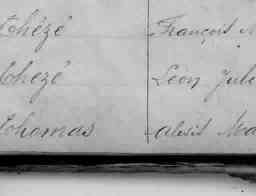 Thézé François M
Thezé Léon Jule
Thomas alexis Ma